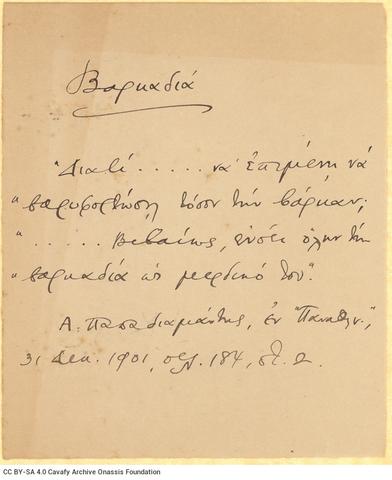 Βαρκαδιά
"Διατί . . . . . . να επιμένη να
"βαρυφορτώση τόσον την βάρκαν;
". . . . . . Βεβαίως, εννοεί όλην την
"βαρκαδιά ως μερδικό του".
Α. Παπαδιαμάντης, εν "Παναθην.",
31 Δεκ. 1901, σελ. 184, στ. 2.
CC BY-SA 4.0 Cavafy Archive Onassis Foundation